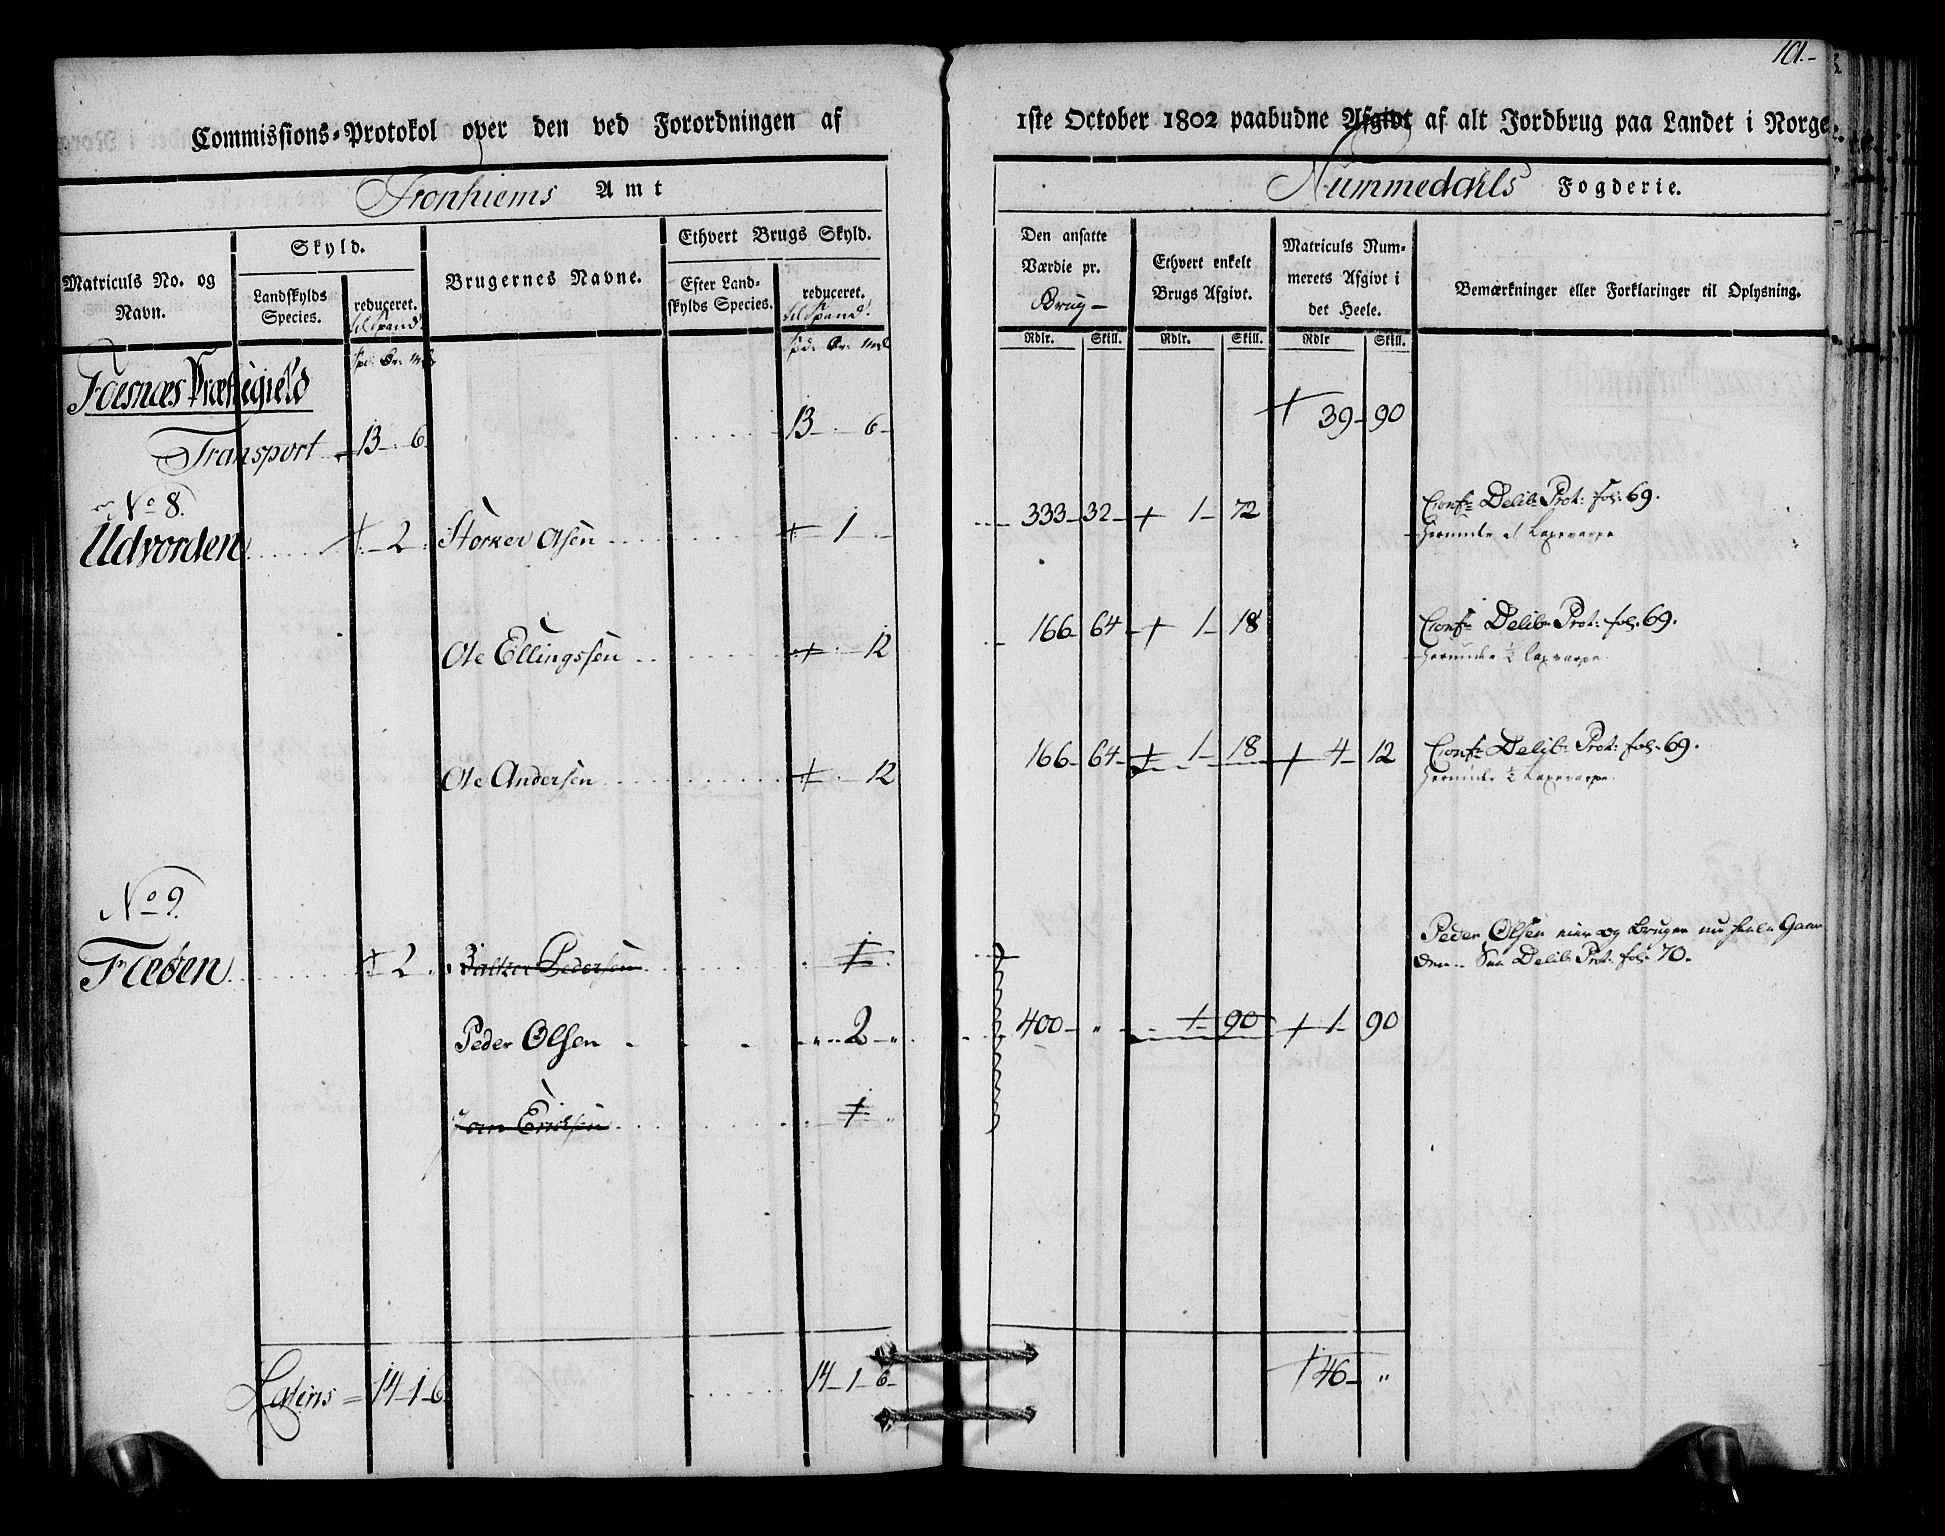 101.-
Commissions-Protokol over den ved Forordningen af 1ste October 1802 paabudne Afgivt af alt Jordbrug paa Landet i Norge.
Tronhiems Amt
Nummedahls Fogderie.
Matriculs No. og Navn.
Skyld.
Landskylds Species.
reduceret.
til Spand.
Spd. Ör. Mkl
Brugernes Navne.
Ethvert Brugs Skyld.
Efter Landskylds Species.
reduceret.
til Spand.
Spd. Ör. Mkl
Den ansatte Værdie pr. Brug-
Rdlr. Skill.
Ethvert enkelt Brugs Afgivt.
Rdlr. Skill.
Matriculs Nummerets Afgivt i det Heele.
Rdlr Skill.
Bemærkninger eller Forklaringer til Oplysning.
Foesnæs Præstegield
Transport 13 - . 6 - 13 - . 6 - 39 - 90
No 8.
Udvorden . 2 . Storker Olsen . 1 . 333 - 32 - 1 - 72 Conf: Delib: Prot: fol: 69.
herunder et Laxevarpe
Ole Ellingssen . 12 166 - 64 - 1 - 18 Conf: Delib: Prot: fol: 69.
herunder ½ Laxevarpe.
Ole Andersen . 12 166 - 64 - 1 - 18 4 - 12 Conf: Delib: Prot: fol: 69.
herunder ½ Laxevarpe.
No 9.
Fæøen . 2 . Pedersen . 1 . Peder Olsen eier og bruger nu heele Gaarden. See Delib: Prot: fol: 70.
Peder Olsen " 2 " 400 - " 1 - 90 1 - 90
Ericksen . 1 .
Lateris = 14 - 1 - 6 14 - 1 - 6 - 46 - "